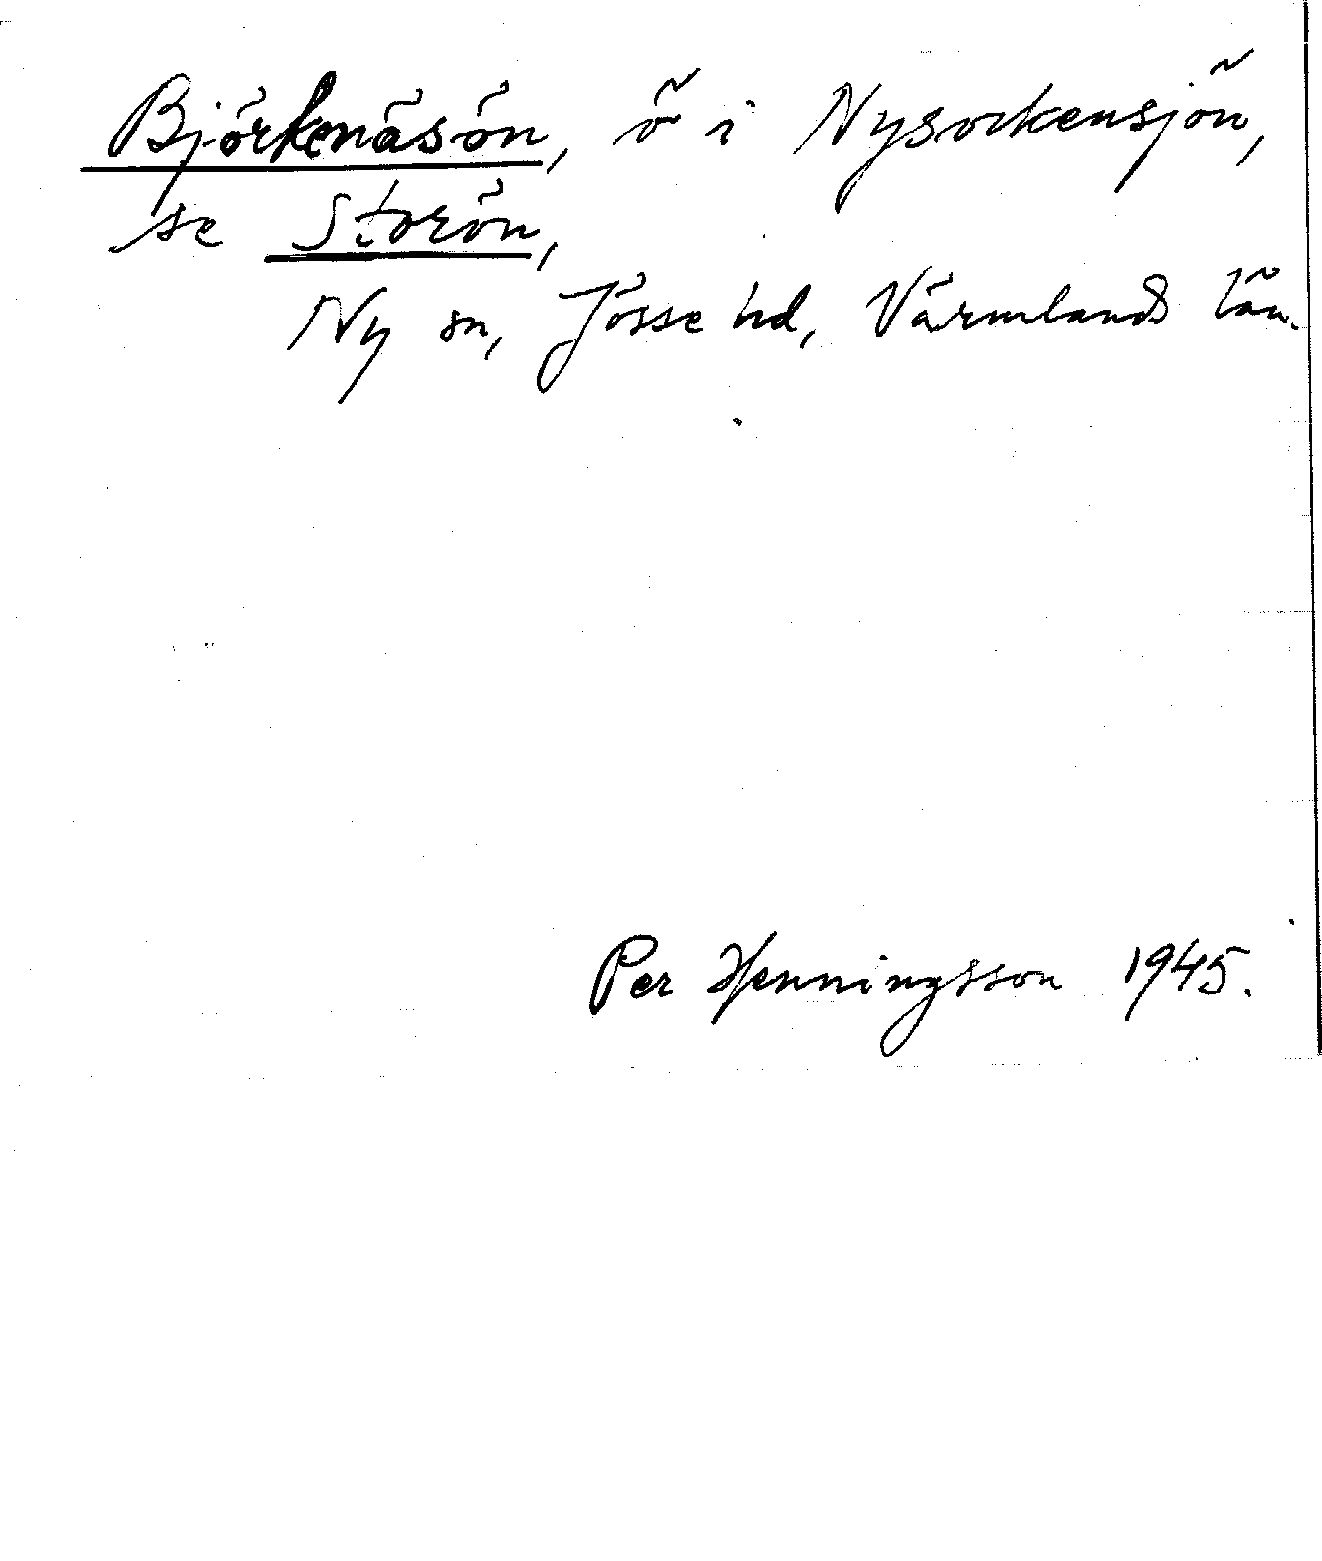 Björkenäsön, ö i Nysockensjön,
se Storön,
Ny sn, Jösse hd, Värmlands län.
Per Henningsson 1945.